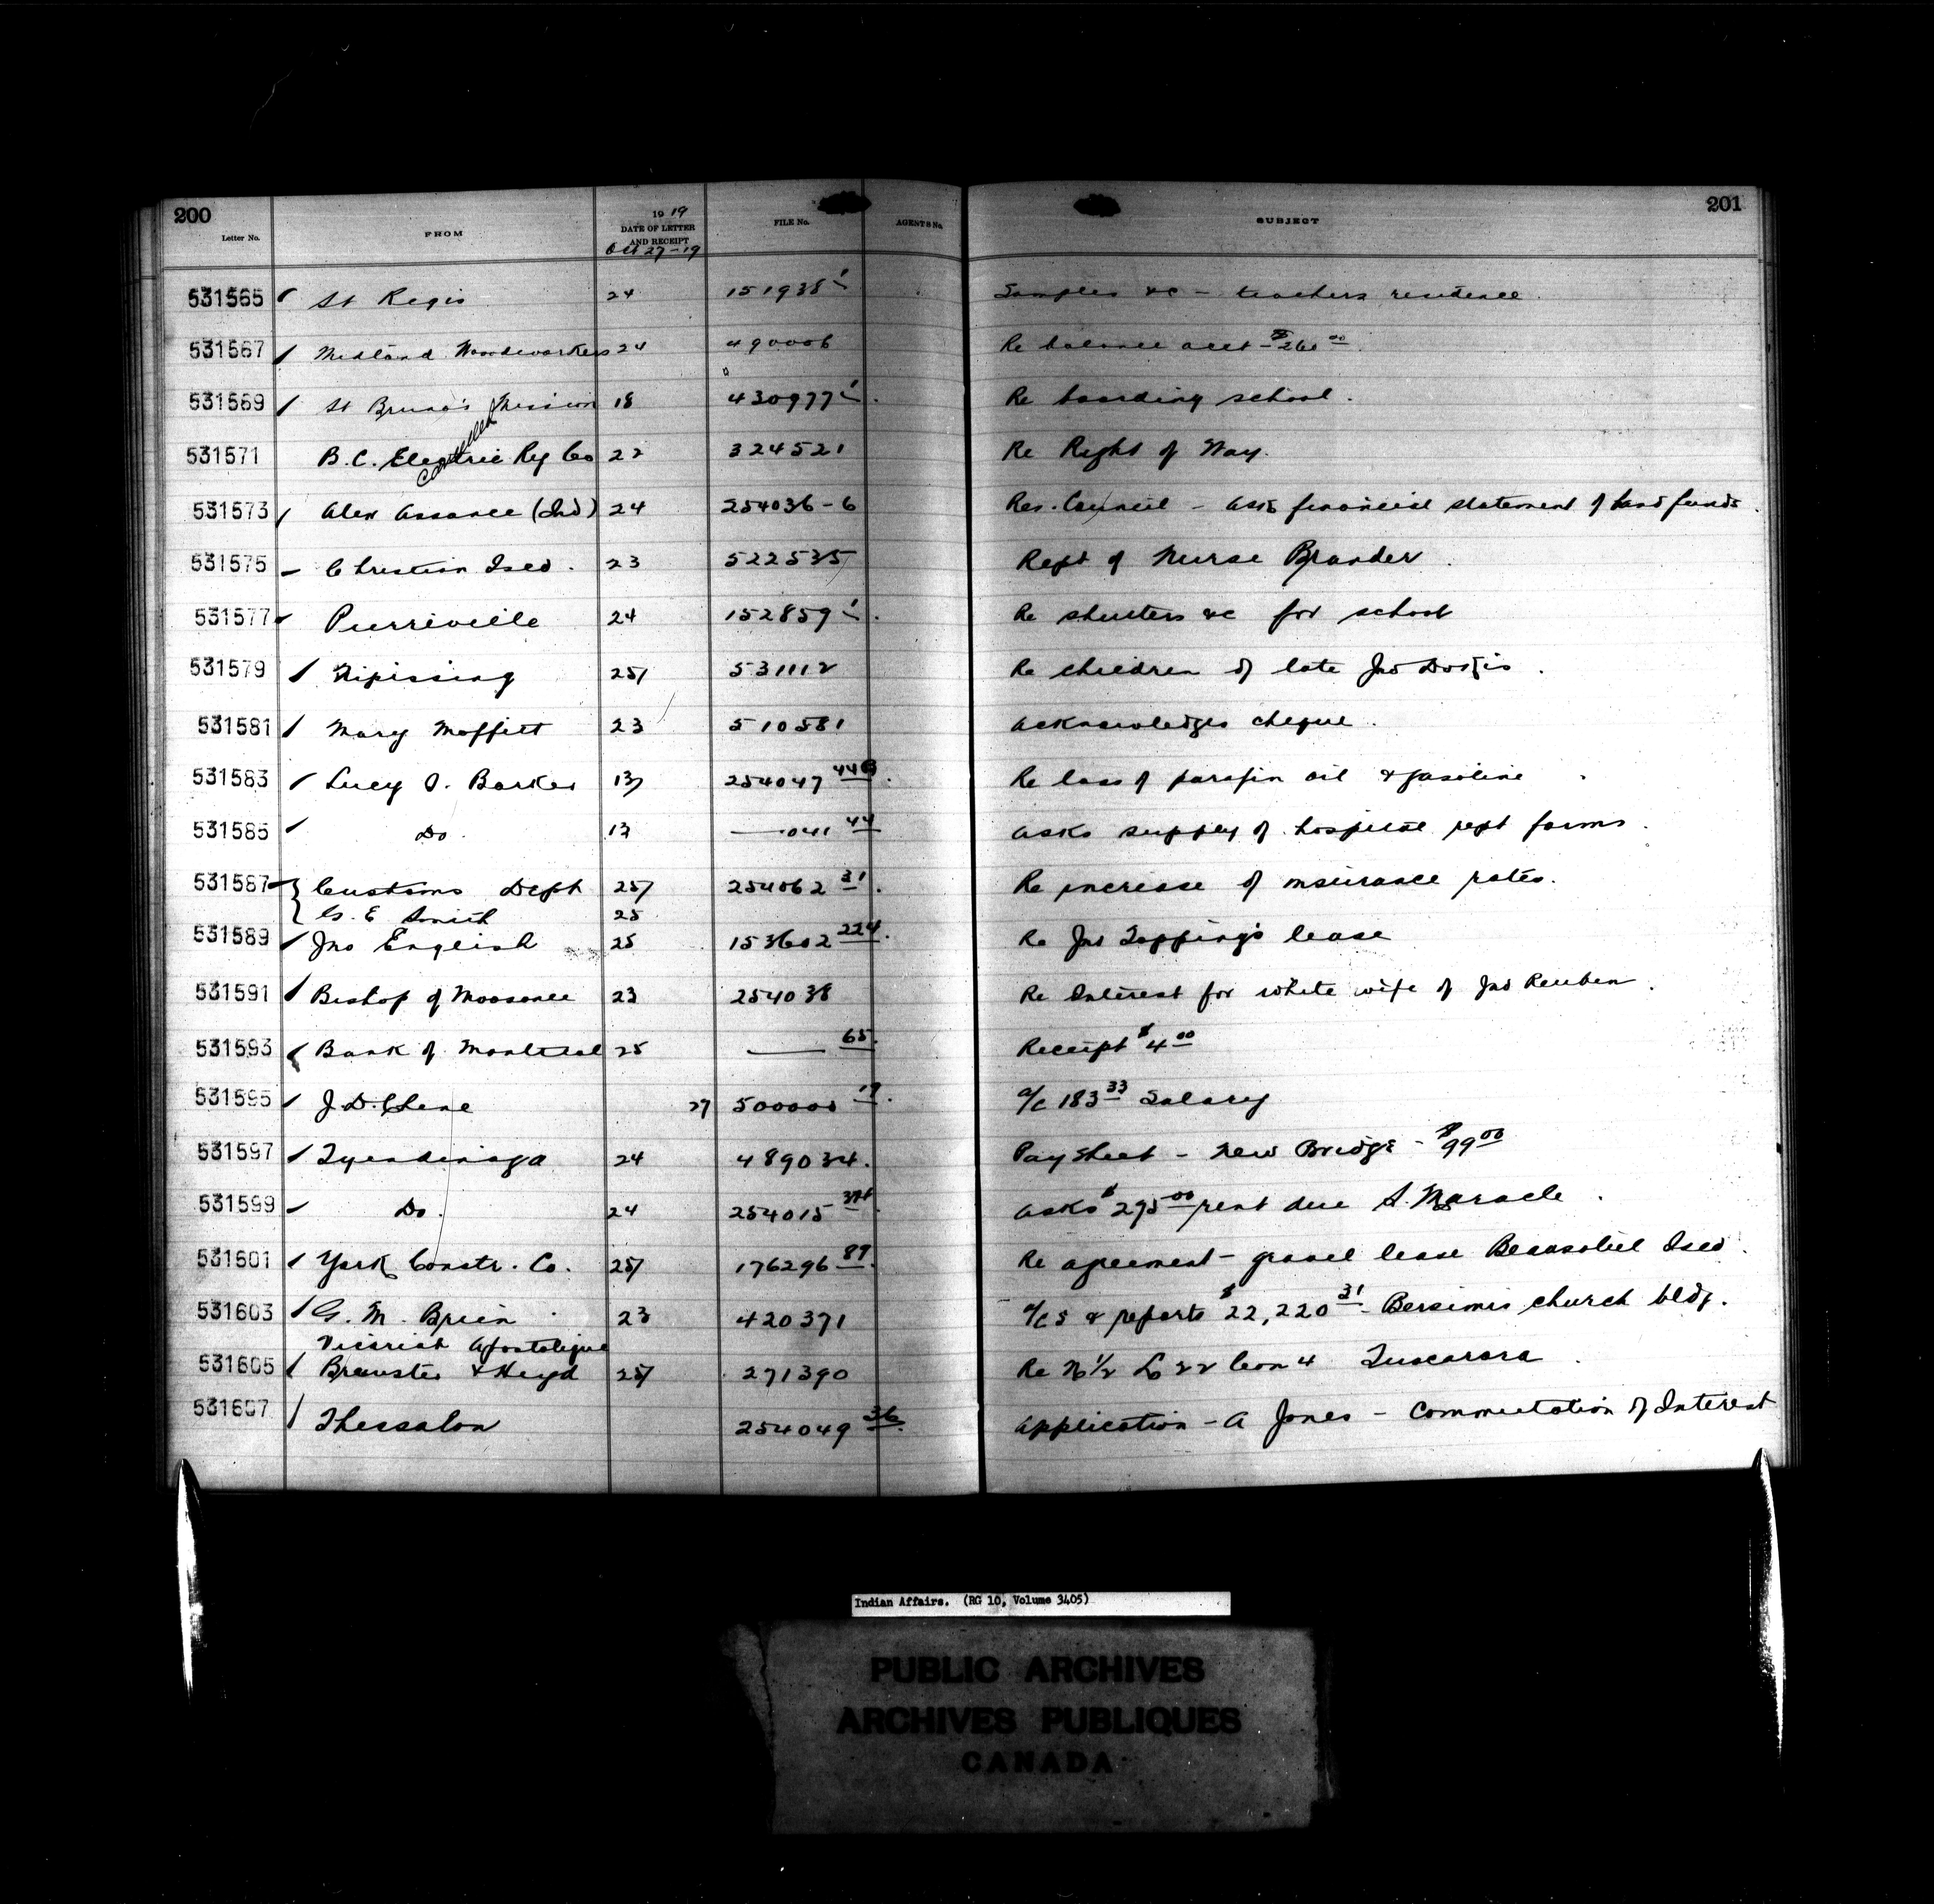 200
201
Letter No. FROM 1919 DATE OF LETTER AND RECEIPT FILE No. AGENT'S No. SUBJECT
Oct 27-19
531565 St Regis 24 151938 Samples &c - teachers residence
531567 Midland Woodworkers 24 490006 Re balance acct - $260 00
531569 St Bruno's Mission 18 430977 Re boarding school.
cancelled
531571 B.C. Electric Ry Co 22 324521 Re Right of Way.
531573 Alex Assance (Ind) 24 254036-6 Res. Council - asks financial statement of band funds.
531575 Christian Isld. 23 522535 Rept of Nurse Brander.
531577 Pierreville 24 152859 Re shutters &c for school
531579 Nipissing 25 531112 Re children of late Jno Dokis.
531581 Mary Moffitt 23 510581 acknowledges cheque.
531583 Lucy I. Barker 13 254047 Re loss of parafin oil & gasoline
531585 Do 13 —041 44 asks supply of hospital rept forms.
531587 Customs Dept 25 254062 31. Re increase of insurance rates.
G. E Smith 25
531589 Jno English 25 153602 224. Re Jno Topping's lease
531591 Bishop of Moosonee 23 254038 Re Interest for white wife of Jno Reuben.
531593 Bank of Montreal 25 — 65. Receipt $4 00
531595 J.D. Chene 27 500000 19. a/c 183 33 Salary
531597 Tyendinaga 24 489034. Pay Sheet - New Bridge - $99 00
531599 Do. 24 254015 asks $295 00 rent due S. Maracle.
531601 York Constr. Co. 25 176296 89. Re agreement - gravel lease Beausoliel Isld.
531603 G. M. Brien 23 420371 a/cs & reports $22,220 31 - Bersimis church bldg.
Vicariat Apostolique
531605 Brewster & Heyd 25 271390 Re N 1/2 L 22 Con 4 Tuscarora
531607 Thessalon 254049 36. application - A Jones - Commutation of Interest
Indian Affairs. (RG 10, Volume 3405)
PUBLIC ARCHIVES
ARCHIVES PUBLIQUES
CANADA